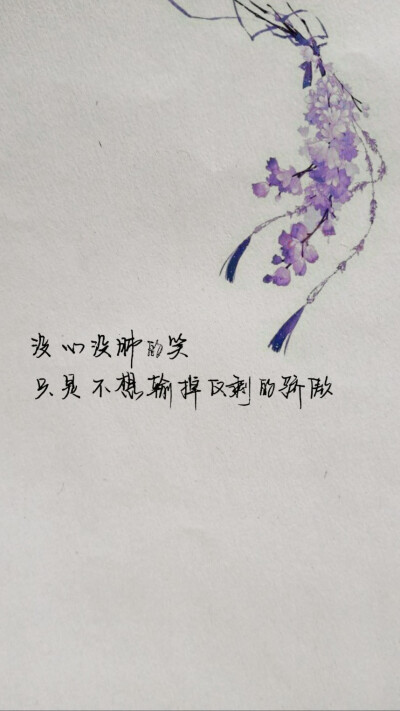 没心没肺的笑
只是不想输掉仅剩的骄傲